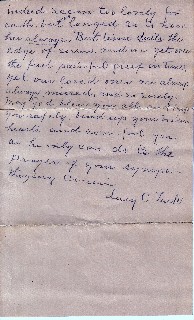 indeed seems too lonely for
earth, but longed so to hear
her always. But time dulls the
edge of sorrow and we get over
the first painful grief in time,
yet our loved ones are always
always missed,
May God bless you all and keep
you safely. bind up your
hearts and comfort you
as he only can do is the
prayer of your
Cousin
Lucy C.